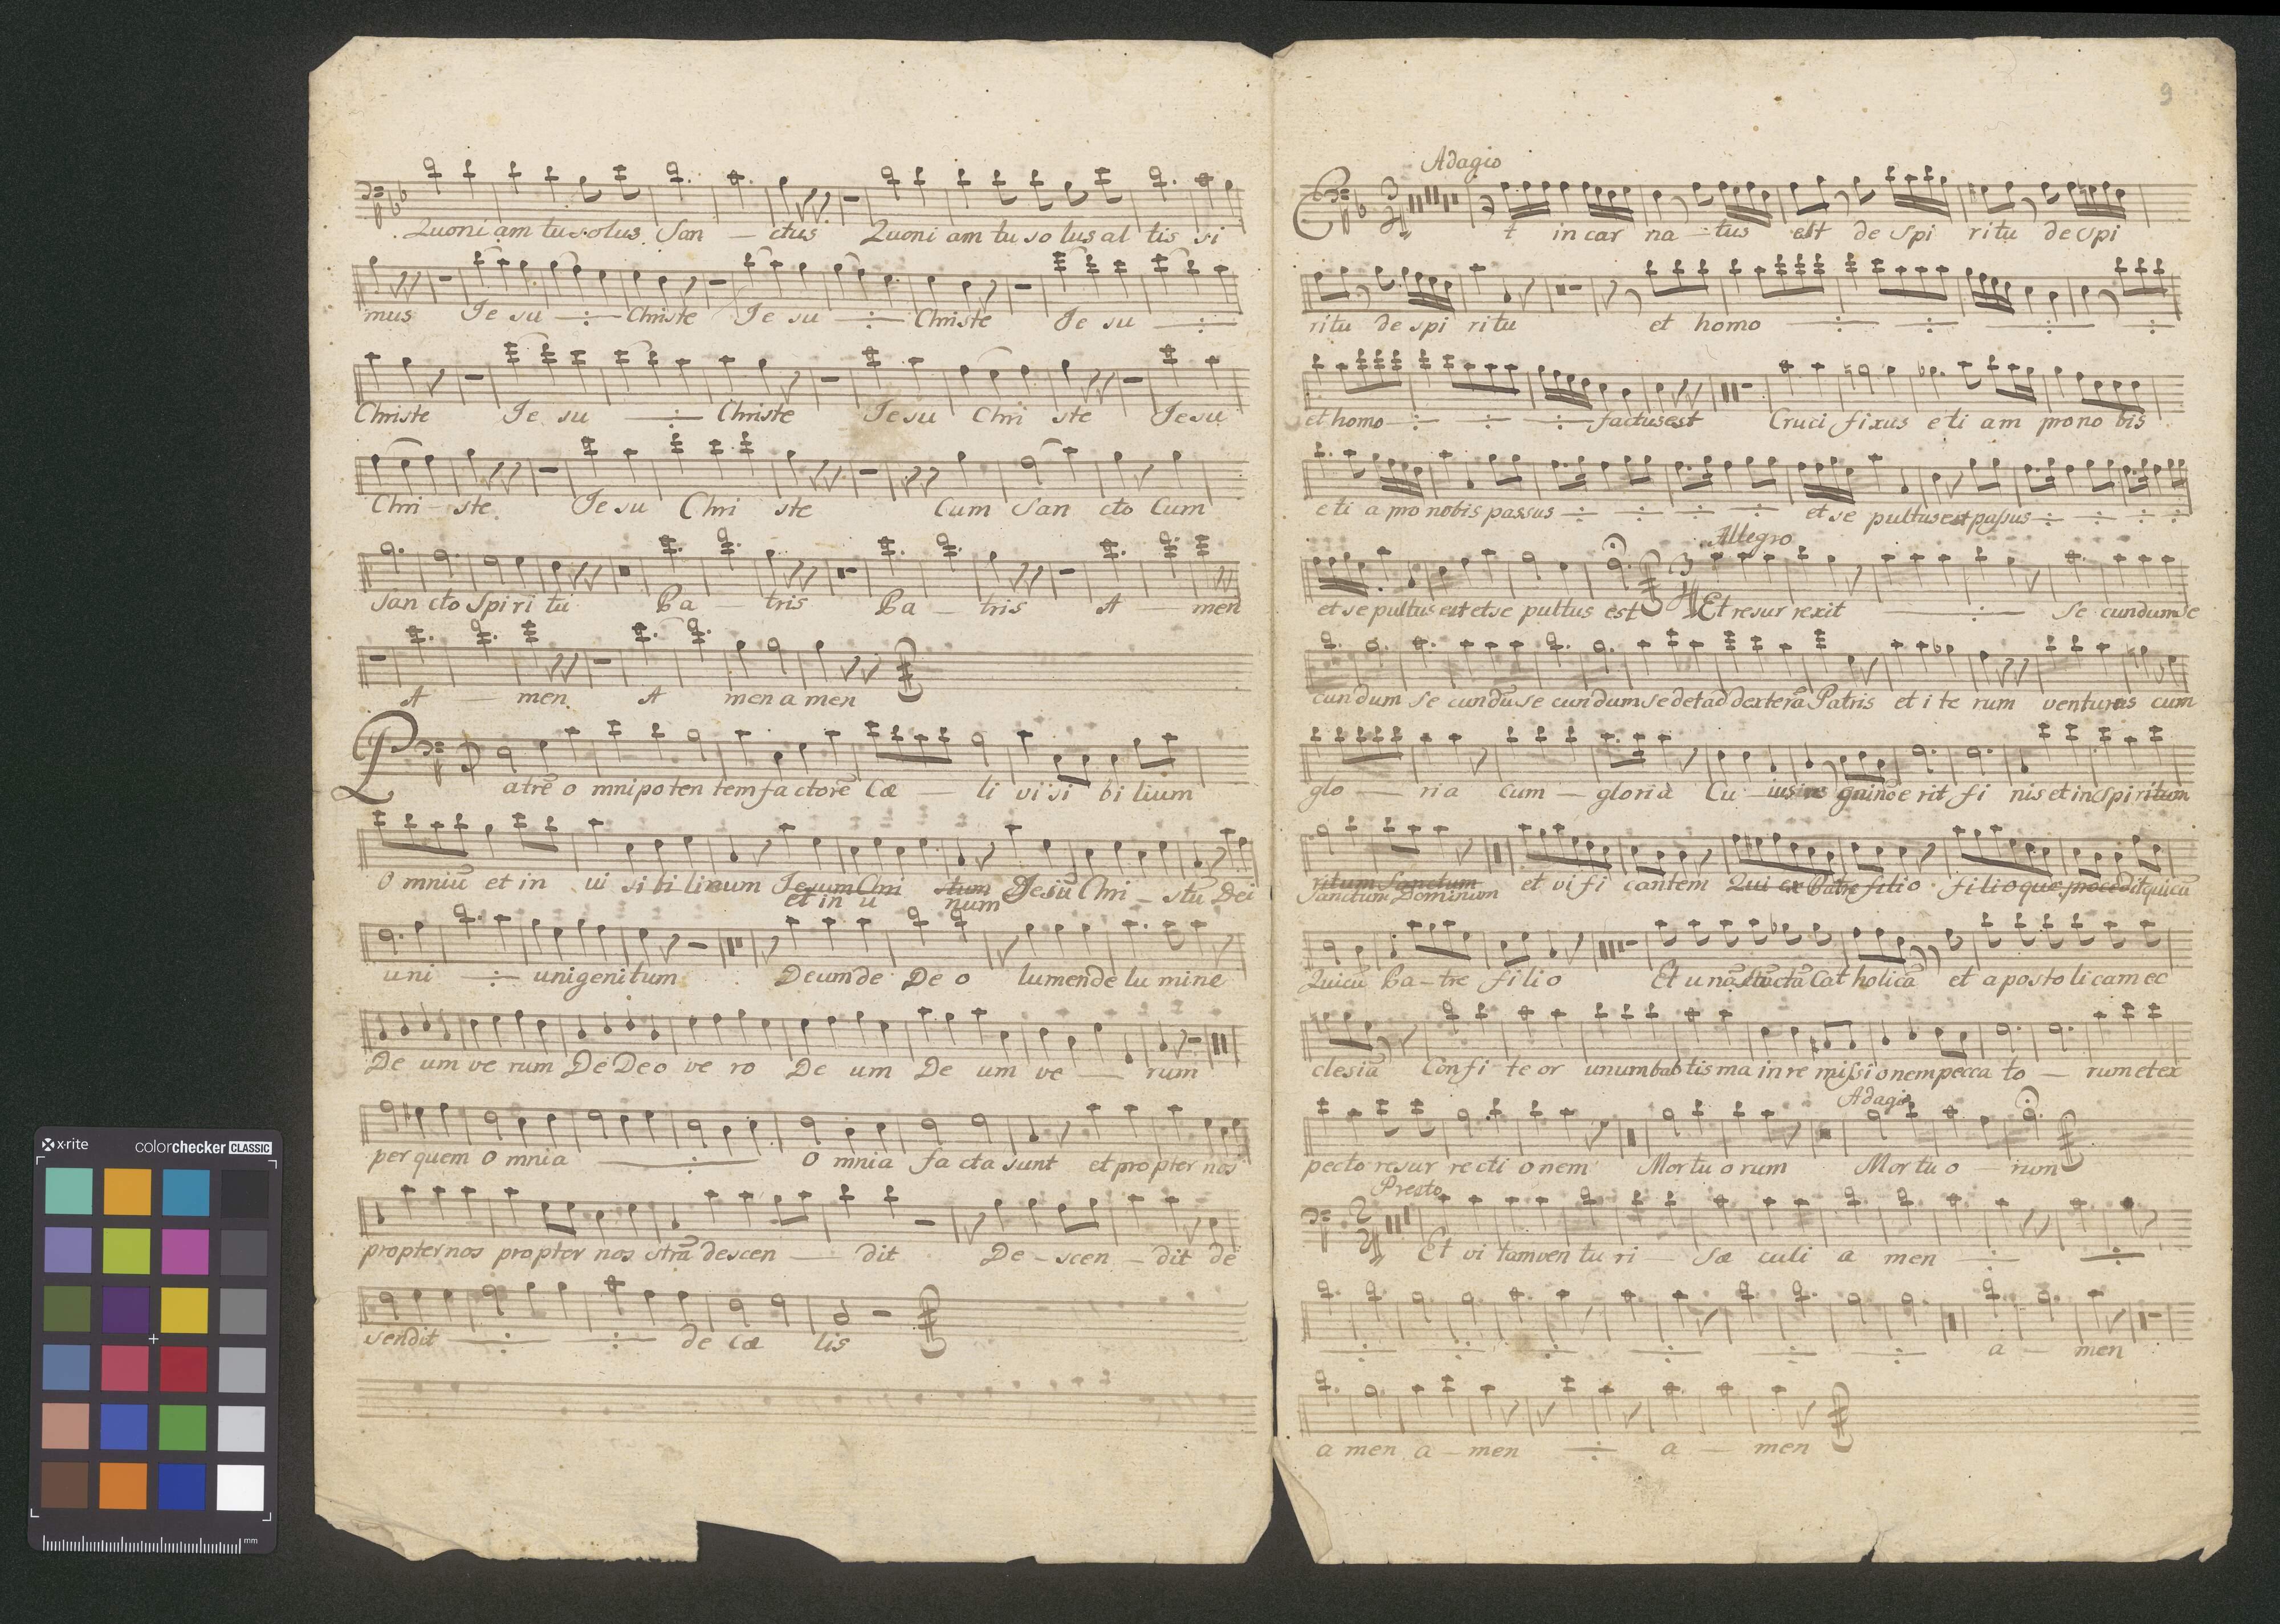 Quoni am tu solus San — ctus Quoni am tu so lus al tis si
mus Je su —:— Christe Je su —:— Christe Je su —:—
Christe Je su —:— Christe Je su Chri ste Je su
Chri - ste Je su Chri ste Cum San cto Cum
San cto Spi ri tu Pa — tris Pa — tris A — men
A — men A men a men
Patrē o mnipoten tem factorē Cæ — li visi bi lium
O mniū et in vi si bi li um Jesum Chri stum Jesū Chri — stū Dei
et in u num
uni —:— unigenitum Deum de De o lumen de lu mine
De um ve rum De Deo ve ro De um De um ve — rum
per quem O mnia —:— O mnia fa cta sunt et propter nos
propter nos propter nos strā descen — dit De - scen — dit de
sendit —:— :— de cæ lis
9
Adagio
Et in car na — tus est de Spi ritu de spi
ritu de spi ritu et homo —:— —:— —:— :
et homo —:— —:— —:— factus est Cruci fixus eti am pro no bis
eti a pro nobis passus —:— —:— —:— —:— et se pultus est paſsus —:— —:— :— :
Allegro
et se pultus est et se pultus est Et resur rexit —:— Se cundum Se
cundum Se cundū se cundum sedet ad dexterā Patris et i te rum venturus cum
glo — ria cum — gloria Cu — ius re gni nō e rit fi nis et in Spi ritum
ritum Sanctum et vi fi cantem Qui ex Patre filio filioque procedit qui cū
Sanctum Dominum
Qui cū Pa — tre fi li o Et unā Catholicā et apostolicam ec
clesiā Confi - te or unum babtisma in re miſsionem pecca to — rum et ex
Adagio
pecto resur recti onem Mor tu o rum Mor tu o — rum
Presto
Et vi tam ven tu ri — Sæ culi a men —:— —:—
—:— —:— —:— —:— —:— —:— a — men
a men a — men —:— a — men